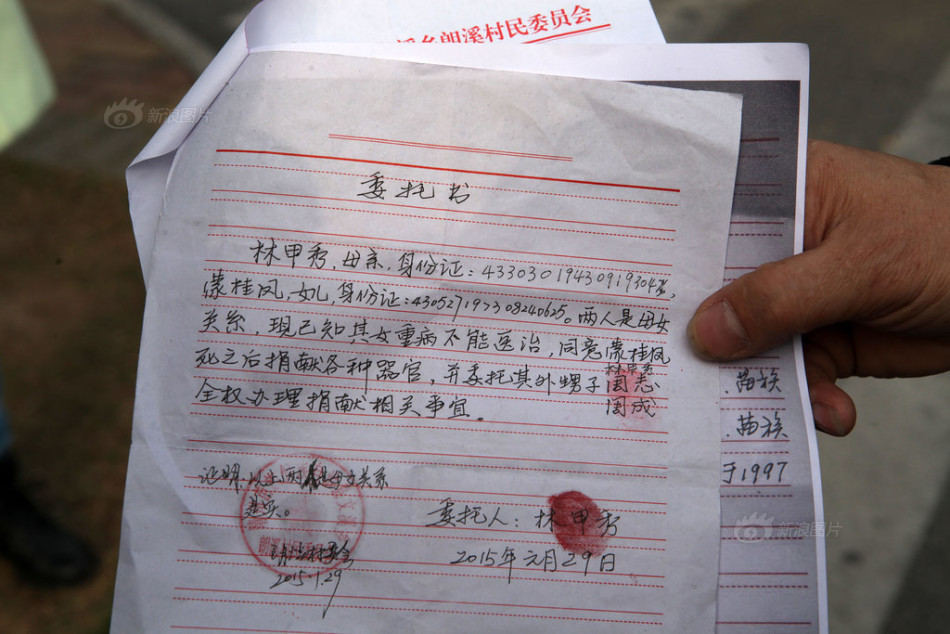 朗溪村民委员会
新浪图片
委托书
林甲秀，母亲，身份证：
蒙桂凤，女儿，身份证：430527197308240625。两人是母女
关系，现已知其女重病不能医治，同意蒙桂凤
死之后捐献各种器官，并委托其外甥子
全权办理捐献相关事宜。
证明：以上两人是母女关系
是实。
2015.1.29
委托人：林甲秀
2015年元月29日
苗族
苗族
于1997
新浪图片